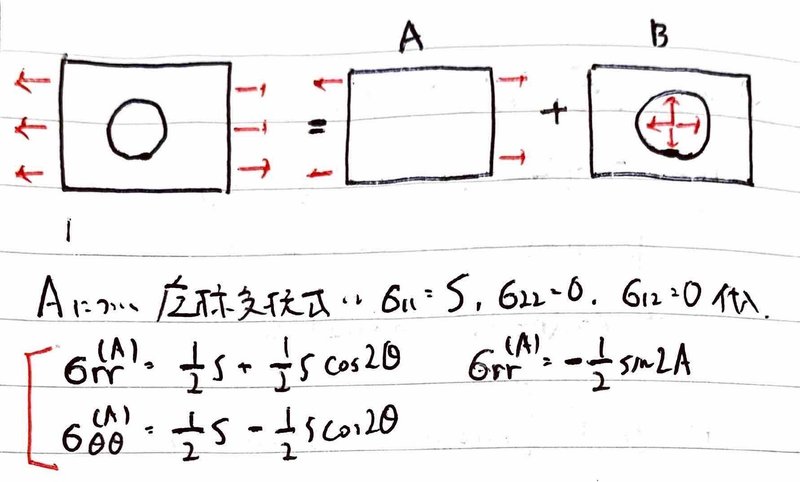 A B
= +
A について 座標変換式‥ σ11=S, σ22=0. σ12=0 代入.
σrr(A) = 1/2 S + 1/2 S cos2θ σrr(A) = -1/2 sin2A
σθθ(A) = 1/2 S - 1/2 S cos2θ